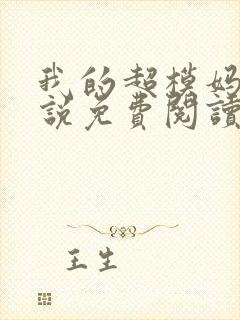 我的超模妈
說免費閱讀
王生